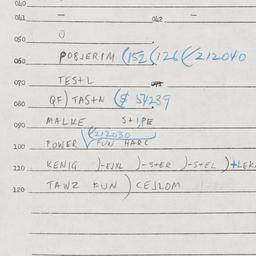 040
041 – 042 –
050 0
060 POBJERIM (152 (126 (212040
070 TEST L
080 QF) TASTN ($ 54239
090 MALKE STIPE
(212030
100 POWER FUN HARC
110 KENIG )-EJXL )-STER )-STEL )+LEK
120 TAWZ FUN) CEJLOM